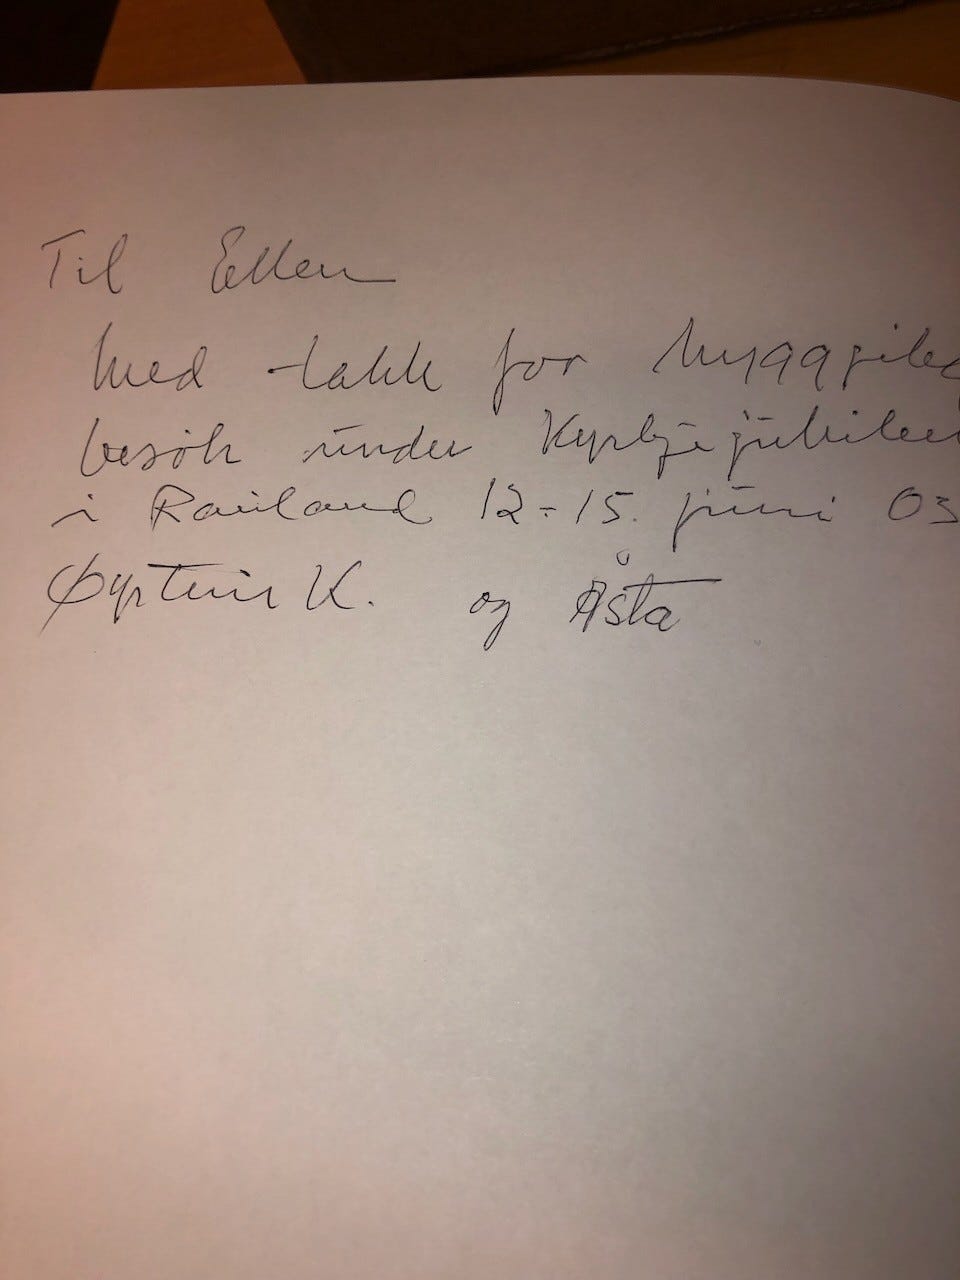 Til Ellen
med takk for hyggeleg
besøk under Kyrkjejubilee
i Rauland 12-15. juni 03
Øystein K. og Åsta